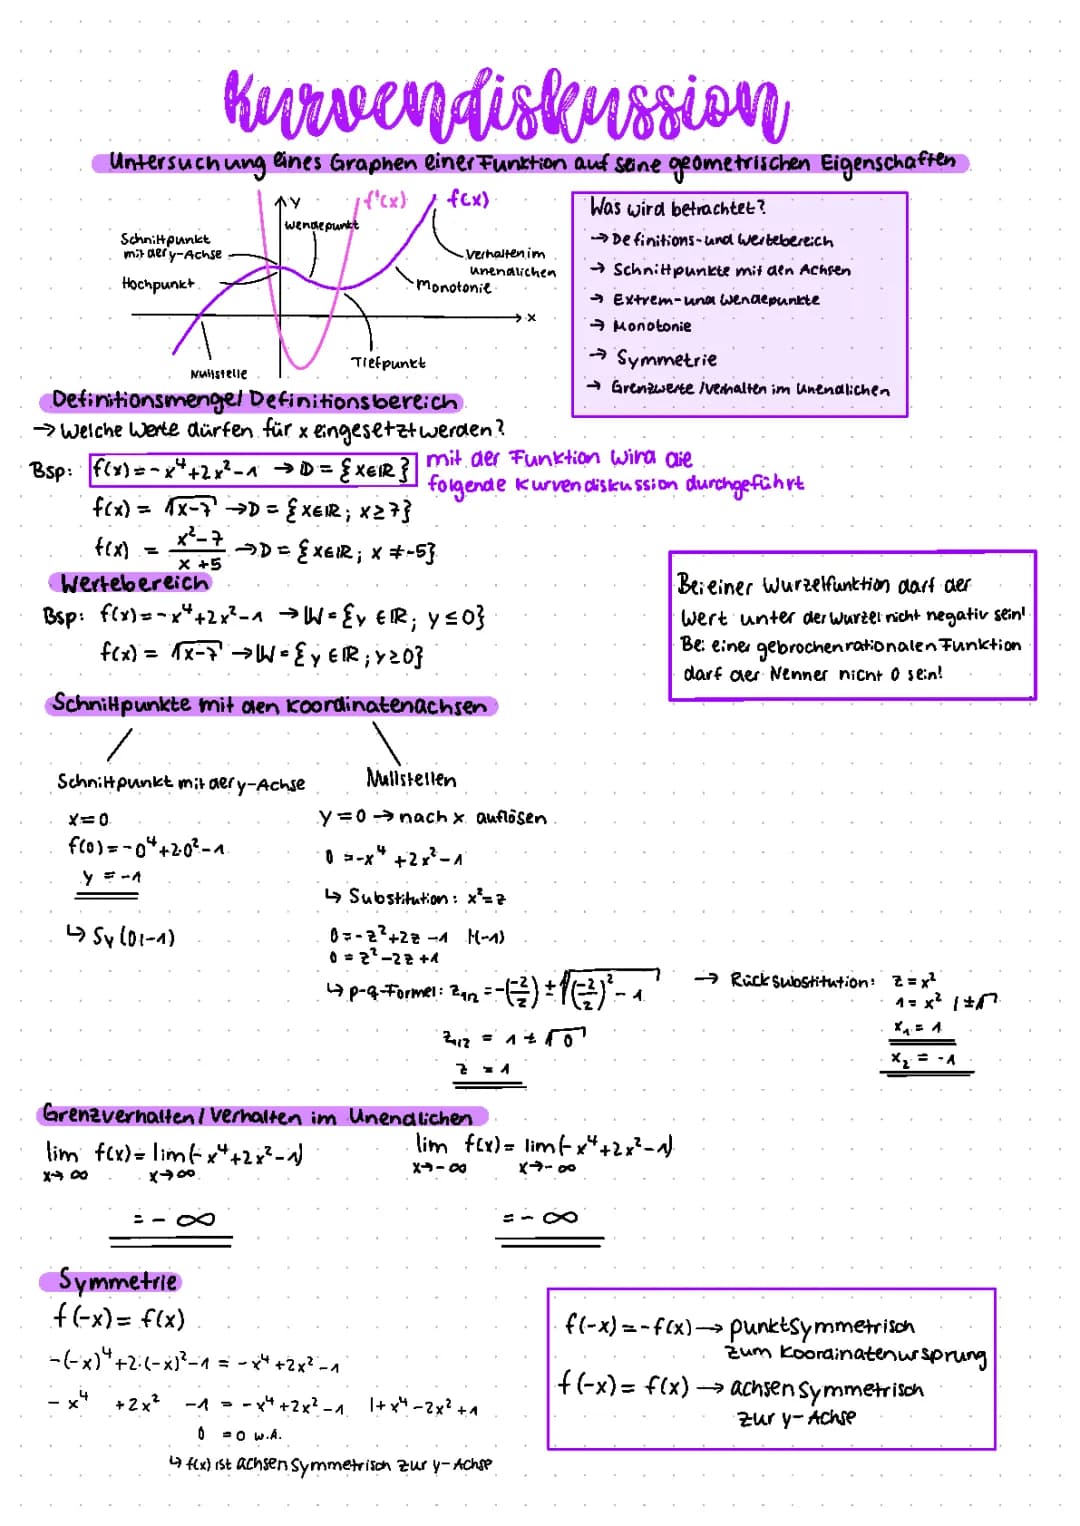 Kurvendiskussion
Untersuchung eines Graphen einer Funktion auf seine geometrischen Eigenschaften
y
f'(x)
f(x)
Wendepunkt
Schnittpunkt
mit der y-Achse
Hochpunkt
Verhalten im
unendlichen
Monotonie
x
Tiefpunkt
Nullstelle
Was wird betrachtet?
→ Definitions- und Wertebereich
→ Schnittpunkte mit den Achsen
→ Extrem- und Wendepunkte
→ Monotonie
→ Symmetrie
→ Grenzwerte / Verhalten im Unendlichen
Definitionsmenge / Definitionsbereich
→ Welche Werte dürfen für x eingesetzt werden?
Bsp: f(x) = -x⁴+2x²-1 → D = {x∈ℝ}
mit der Funktion wird die
folgende Kurvendiskussion durchgeführt
f(x) = √x-7 → D = {x∈ℝ; x≥7}
f(x) = (x²-7)/(x+5) → D = {x∈ℝ; x≠-5}
Wertebereich
Bsp: f(x) = -x⁴+2x²-1 → W = {y∈ℝ; y≤0}
f(x) = √x-7 → W = {y∈ℝ; y≥0}
Bei einer Wurzelfunktion darf der
Wert unter der Wurzel nicht negativ sein!
Bei einer gebrochenrationalen Funktion
darf der Nenner nicht 0 sein!
Schnittpunkte mit den Koordinatenachsen
Schnittpunkt mit der y-Achse
x=0
f(0) = -0⁴+2·0²-1
y = -1
↳ Sy (0|-1)
Nullstellen
y=0 → nach x auflösen
0 = -x⁴+2x²-1
↳ Substitution: x²=z
0 = -z²+2z-1 |·(-1)
0 = z²-2z+1
↳ p-q-Formel: z₁/₂ = -(-2/2) ± √(-2/2)²-1
z₁/₂ = 1 ± √0
z = 1
→ Rücksubstitution: z = x²
1 = x² | ±√
x₁ = 1
x₂ = -1
Grenzverhalten / Verhalten im Unendlichen
lim f(x) = lim(-x⁴+2x²-1)
x→∞ x→∞
= -∞
lim f(x) = lim(-x⁴+2x²-1)
x→-∞ x→-∞
= -∞
Symmetrie
f(-x) = f(x)
-(-x)⁴+2·(-x)²-1 = -x⁴+2x²-1
-x⁴ +2x² -1 = -x⁴+2x²-1 |+x⁴-2x²+1
0 = 0 w.A.
↳ f(x) ist achsensymmetrisch zur y-Achse
f(-x) = -f(x) → punktsymmetrisch
zum Koordinatenursprung
f(-x) = f(x) → achsensymmetrisch
zur y-Achse